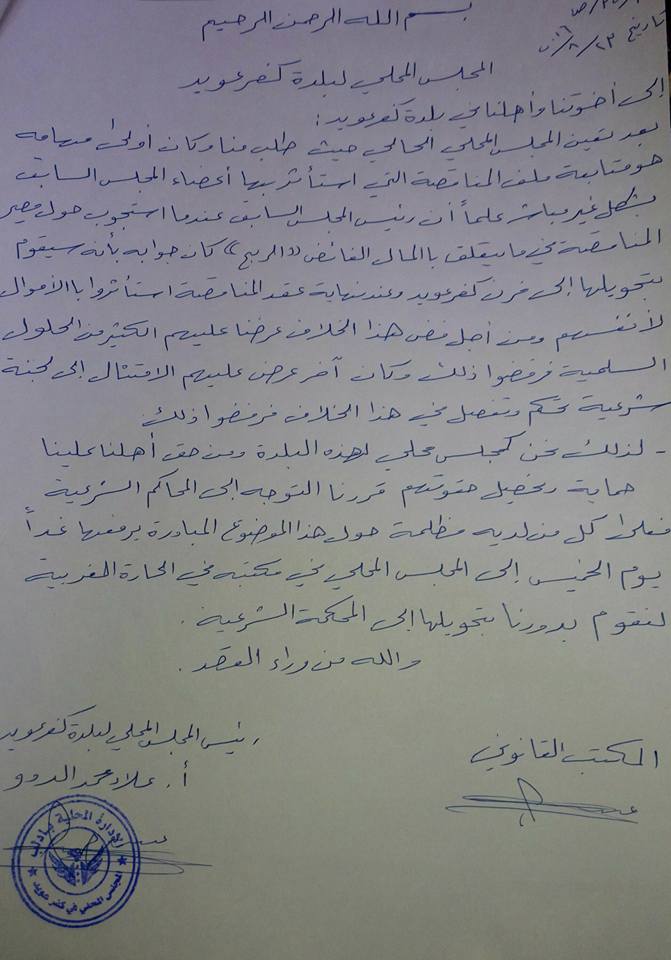 بسم الله الرحمن الرحيم
تاريخ ٢٣/٢/
المجلس المحلي لبلدة كفرعويد
إلى أخوتنا وأهلنا في بلدة كفرعويد:
بعد تعين المجلس المحلي الحالي حيث طلب منا وكان أولى مهامه
هو متابعة ملف المناقصة التي استأثر بها أعضاء المجلس السابق
بشكل غير مباشر علماً أن رئيس المجلس السابق عندما استجوب حول مصير
المناقصة في ما يتعلق بالمال الفائض "الربح" كان جوابه بأنه سيقوم
بتحويلها إلى فرن كفرعويد وعند نهاية عقد المناقصة استأثروا بالأموال
لأنفسهم ومن أجل فض هذا الخلاف عرضنا عليهم الكثير من الحلول
السلمية فرفضوا ذلك وكان آخر عرض عليهم الامتثال إلى لجنة
شرعية تحكم وتفصل في هذا الخلاف فرفضوا ذلك
- لذلك نحن كمجلس محلي لهذه البلدة ومن حق أهلنا علينا
حماية وتحصيل حقوقهم قررنا التوجه إلى المحاكم الشرعية
فعلى كل من لديه مظلمة حول هذا الموضوع المبادرة برفعها غداً
يوم الخميس إلى المجلس المحلي في مكتبه في الحارة الغربية
لنقوم بدورنا بتحويلها إلى المحكمة الشرعية.
والله من وراء القصد.
رئيس المجلس المحلي لبلدة كفرعويد
المكتب القانوني
أ. علاء محمد الددو
الإدارة المحلية بإدلب
المجلس المحلي في كفر عويد